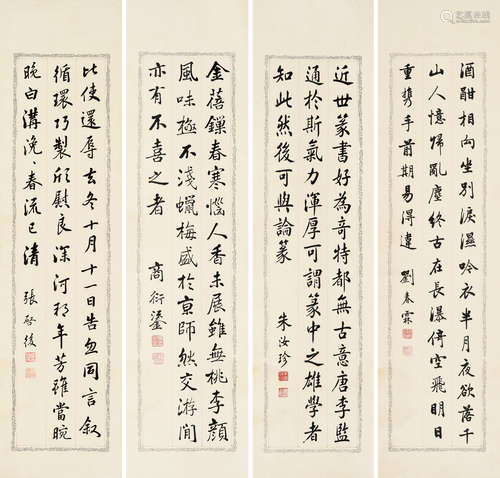 酒酣相向坐別淚濕吟衣半月夜欲落千
山人憶歸亂塵終古在長瀑倚空飛明日
重攜手前期易得違
劉春霖
近世篆書好為奇特都無古意唐李監
通於斯氣力渾厚可謂篆中之雄學者
知此然後可與論篆
朱汝珍
金蓓鏁春寒惱人香未展雖無桃李顏
風味極不淺蠟梅盛於京師然交游間
亦有不喜之者
商衍鎏
比使還辱去冬十月十一日告忽同言敘
循環巧製欣慰良深河移年芳雖當晼
晚白溝浼浼春流已清
張啓後